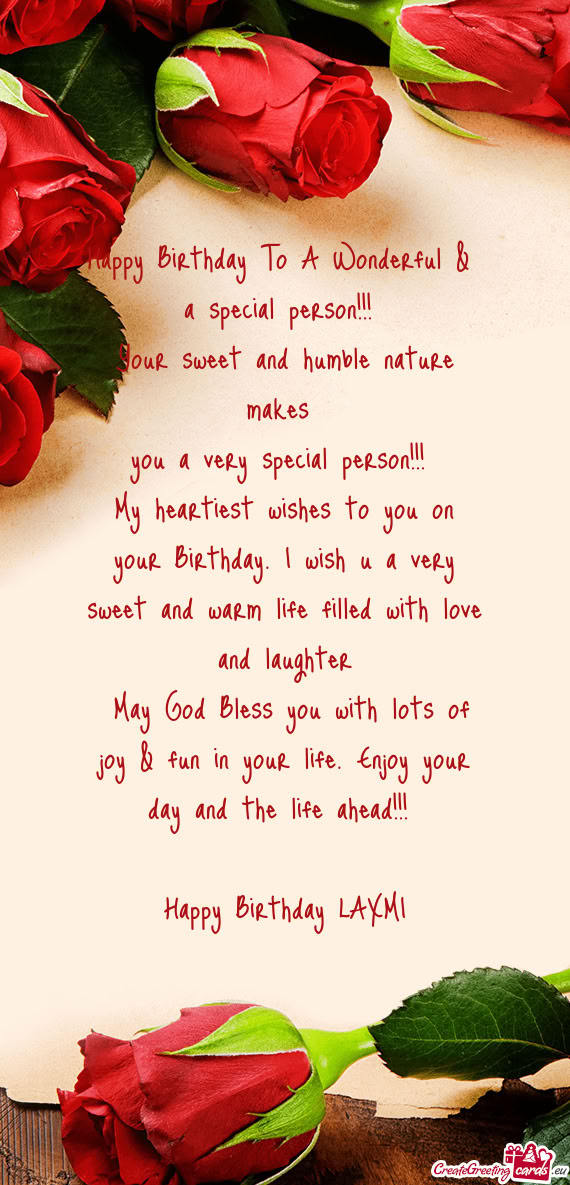 Happy Birthday To A Wonderful &
a special person!!!
Your sweet and humble nature
makes
you a very special person!!!
My heartiest wishes to you on
your Birthday. I wish u a very
sweet and warm life filled with love
and laughter
May God Bless you with lots of
joy & fun in your life. Enjoy your
day and the life ahead!!!
Happy Birthday LAXMI
CreateGreetingcards.eu